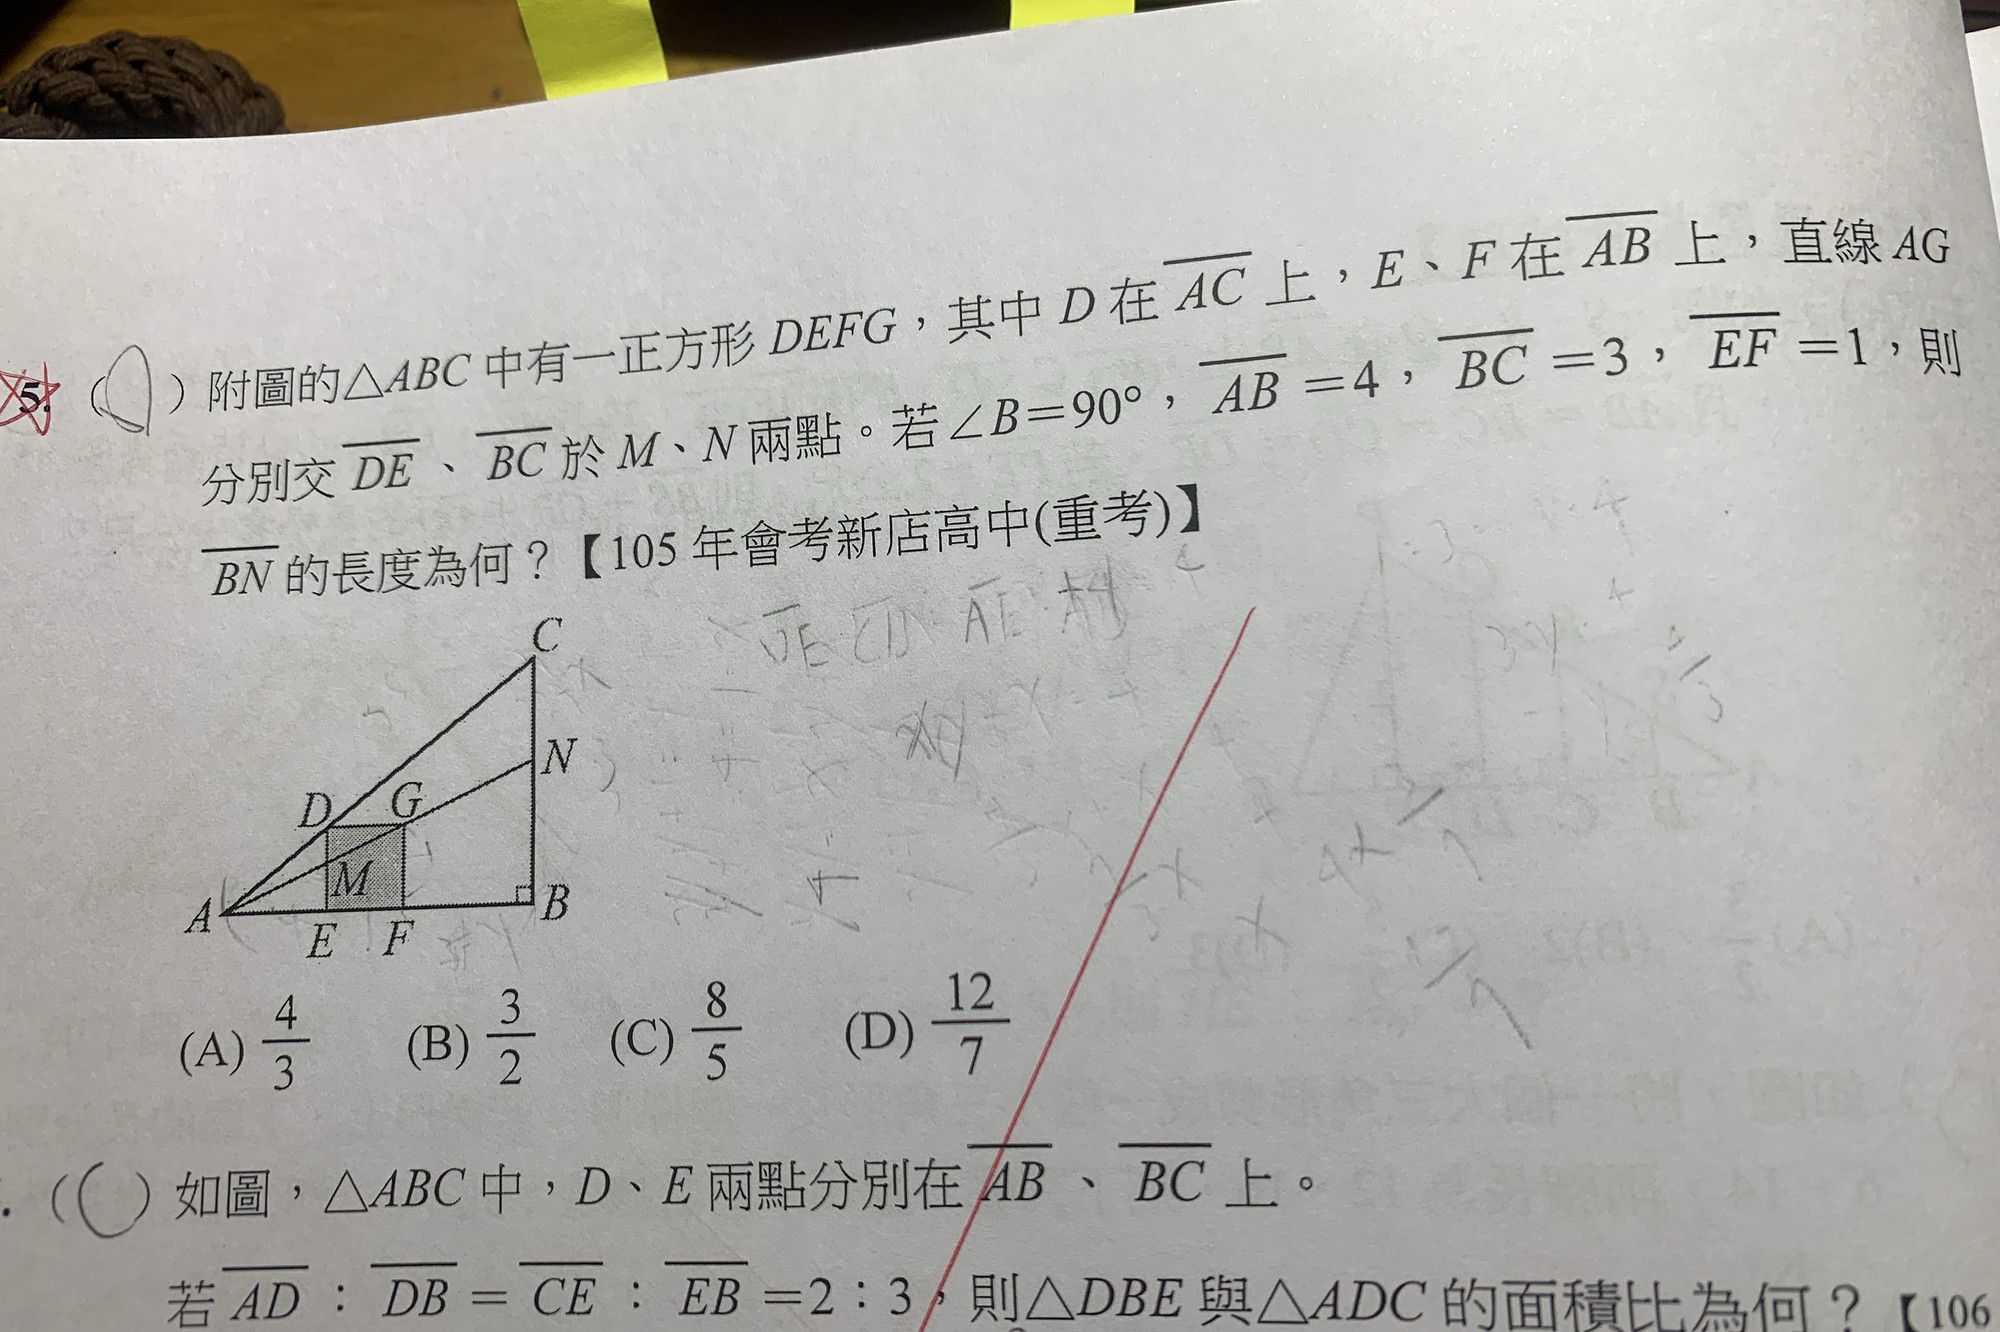 5. ( D ) 附圖的△ABC 中有一正方形 DEFG，其中 D 在 AC 上，E、F 在 AB 上，直線 AG
分別交 DE、BC 於 M、N 兩點。若∠B=90°，AB=4，BC=3，EF=1，則
BN 的長度為何？【105 年會考新店高中(重考)】
C
N
D G
M
A B
E F
(A) 4/3 (B) 3/2 (C) 8/5 (D) 12/7
. ( C ) 如圖，△ABC 中，D、E 兩點分別在 AB、BC 上。
若 AD：DB=CE：EB=2：3，則△DBE 與△ADC 的面積比為何？【106